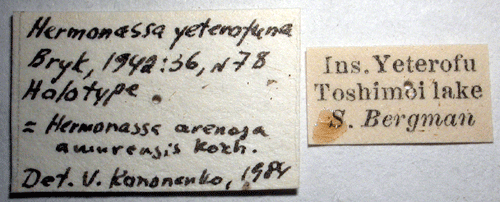 Hermonassa yeterofuna
Bryk, 1942:36, N78
Holotype
= Hermonassa arenosa
amurensis Kozh.
Det. V. Kononenko, 1984
Ins. Yeterofu
Toshimoi lake
S. Bergman